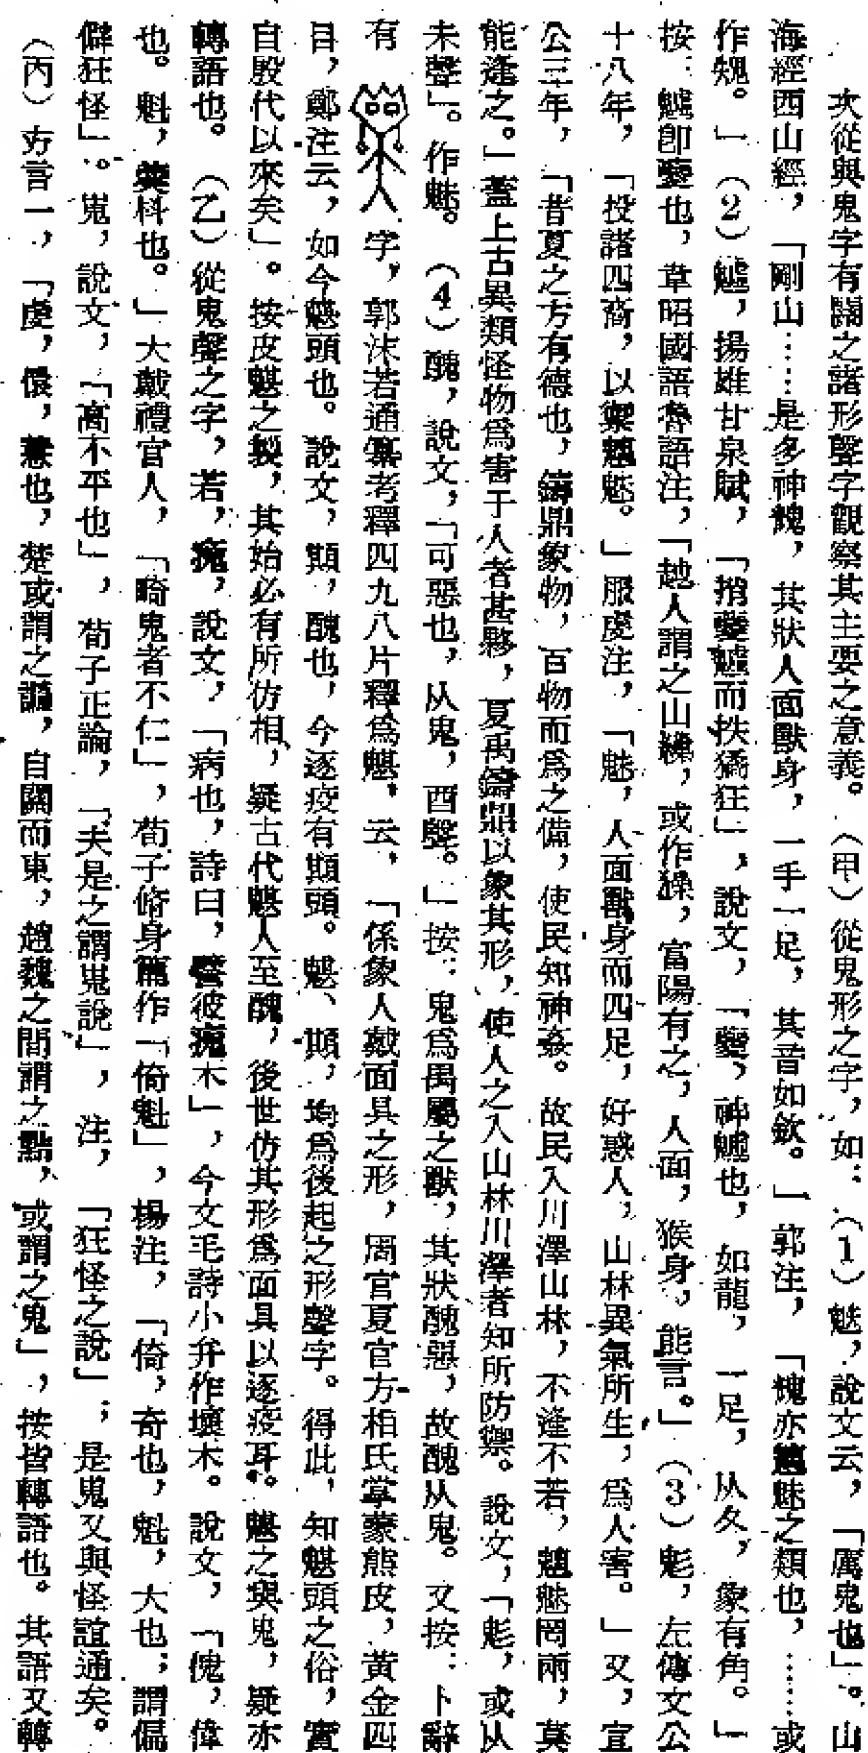 次從與鬼字有關之諸形聲字觀察其主要之意義。（甲）從鬼形之字，如：（1）魅，說文云，「厲鬼也」。山
海經西山經，「剛山……是多神䰠，其狀人面獸身，一手一足，其音如欽。」郭注，「䰠亦魑魅之類也，……或
作䰠。」（2）魖，揚雄甘泉賦，「捎夔魖而抶獝狂」，說文，「夔，神魖也，如龍，一足，从夊，象有角。」
按：魖卽夔也，韋昭國語魯語注，「越人謂之山繅，或作獟，富陽有之，人面，猴身，能言。」（3）鬽，左傳文公
十八年，「投諸四裔，以禦魑魅。」服虔注，「魅，人面獸身而四足，好惑人，山林異氣所生，爲人害。」又，宣
公三年，「昔夏之方有德也，鑄鼎象物，百物而爲之備，使民知神姦。故民入川澤山林，不逢不若，魑魅罔兩，莫
能逢之。」蓋上古異類怪物爲害于人者甚夥，夏禹鑄鼎以象其形，使人之入山林川澤者知所防禦。說文，「鬽，或从
未聲」。作魅。（4）醜，說文，「可惡也，从鬼，酉聲。」按：鬼爲禺屬之獸，其狀醜惡，故醜从鬼。又按：卜辭
有字，郭沫若通纂考釋四九八片釋爲魌，云，「係象人戴面具之形，周官夏官方相氏掌蒙熊皮，黃金四
目，鄭注云，如今魌頭也。說文，䫏，醜也，今逐疫有䫏頭。魌、䫏，均爲後起之形聲字。得此，知魌頭之俗，實
自殷代以來矣」。按皮魌之製，其始必有所仿相，疑古代魌人至醜，後世仿其形爲面具以逐疫耳。魌之與鬼，疑亦
轉語也。（乙）從鬼聲之字，若，瘣，說文，「病也，詩曰，譬彼瘣木」，今文毛詩小弁作壞木。說文，「傀，偉
也。魁，羹枓也。」大戴禮官人，「畸鬼者不仁」，荀子脩身篇作「倚魁」，楊注，「倚，奇也，魁，大也；謂偏
僻狂怪」。嵬，說文，「高不平也」，荀子正論，「夫是之謂嵬說」，注，「狂怪之說」；是鬼又與怪誼通矣。
（丙）方言一，「虔，儇，慧也，楚或謂之䜏，自關而東，趙魏之間謂之黠，或謂之鬼」，按皆轉語也。其語又轉